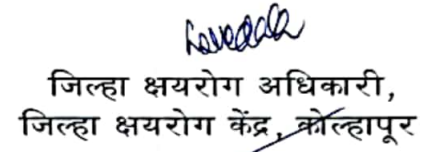 जिल्हा क्षयरोग अधिकारी,
जिल्हा क्षयरोग केंद्र, कोल्हापूर